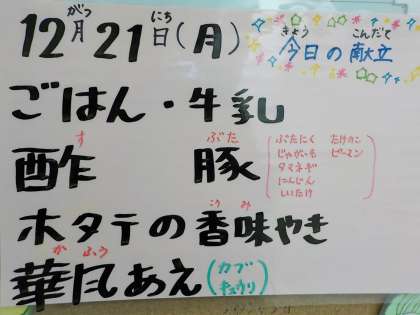 がつ にち
12月21日(月)
きょう こんだて
今日の献立
ごはん・牛乳
す ぶた
酢豚
ぶたにく たけのこ
じゃがいも ピーマン
タマネギ
にんじん
しいたけ
こうみ
ホタテの香味やき
かふう
華風あえ(カブ
キュウリ)